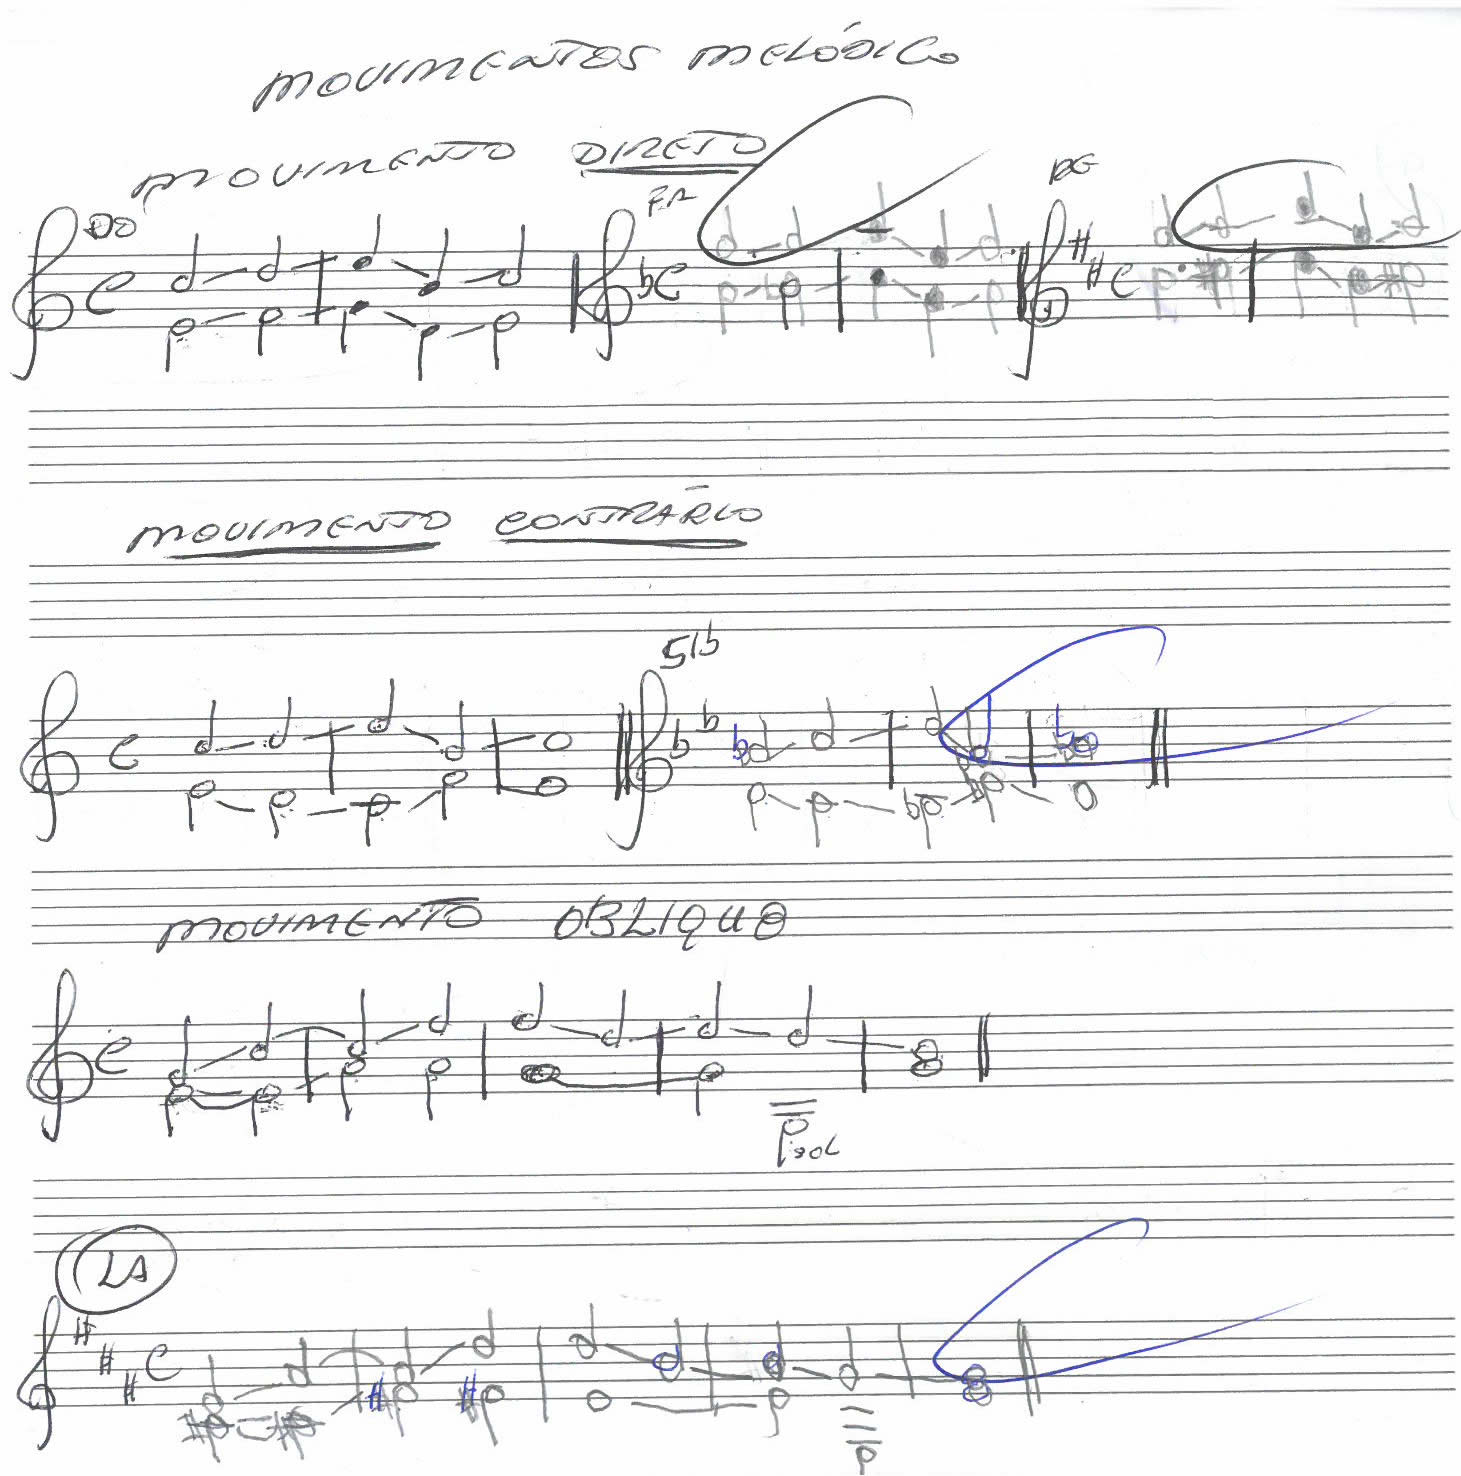 MOVIMENTOS MELÓDICO
MOVIMENTO DIRETO
DO FA RE
MOVIMENTO CONTRÁRIO
SIb
MOVIMENTO OBLIQUO
SOL
LA